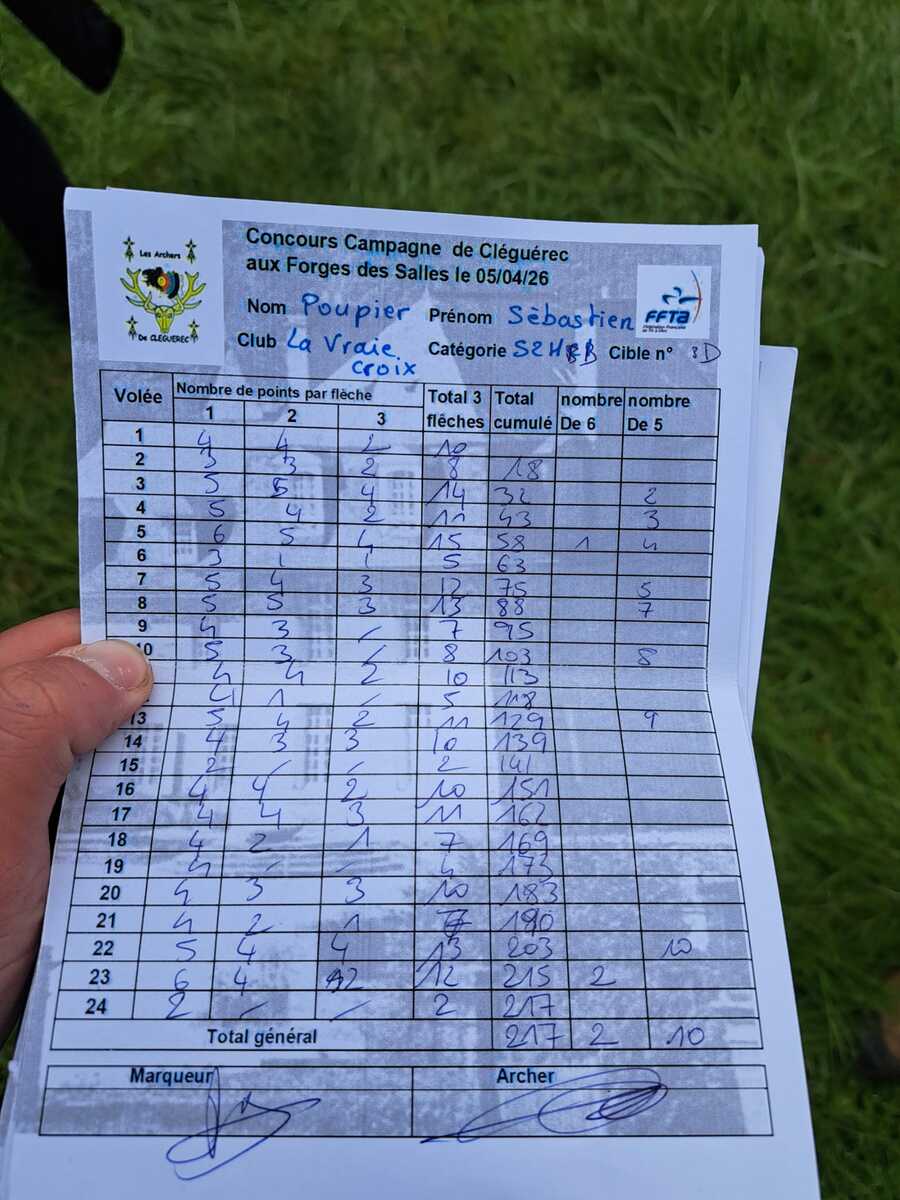 Les Archers
De CLEGUEREC
Concours Campagne de Cléguérec
aux Forges des Salles le 05/04/26
FFTA
Nom Poupier Prénom Sèbastien
Club La Vraie croix Catégorie S2H BB Cible n° 8D
Volée Nombre de points par flèche Total 3 flêches Total cumulé nombre De 6 nombre De 5
1 2 3
1 4 4 2 10
2 3 3 2 8 18
3 5 5 4 14 32 2
4 5 4 2 11 43 3
5 6 5 4 15 58 1 4
6 3 1 1 5 63
7 5 4 3 12 75 5
8 5 5 3 13 88 7
9 4 3 / 7 95
10 5 3 / 8 103 8
4 4 2 10 113
4 1 / 5 118
13 5 4 2 11 129 9
14 4 3 3 10 139
15 2 / / 2 141
16 4 4 2 10 151
17 4 4 3 11 162
18 4 2 1 7 169
19 4 / / 4 173
20 4 3 3 10 183
21 4 2 1 7 190
22 5 4 4 13 203 10
23 6 4 2 12 215 2
24 2 / / 2 217
Total général 217 2 10
Marqueur Archer